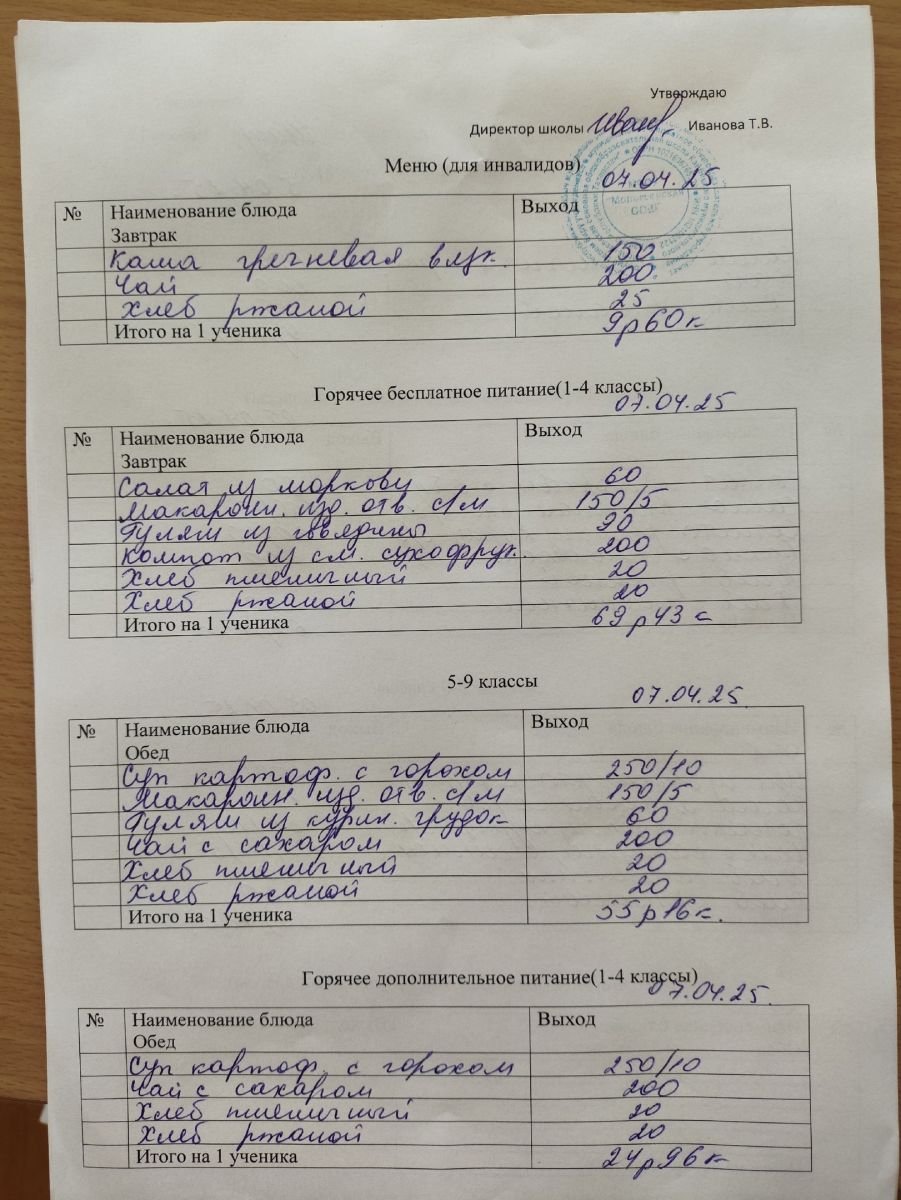 Утверждаю
Директор школы Иванова Т.В.
Меню (для инвалидов)
07.04.25
№ Наименование блюда Выход
Завтрак
Каша гречневая вязк. 150
Чай 200
Хлеб ржаной 25
Итого на 1 ученика 9р60к
Горячее бесплатное питание(1-4 классы)
07.04.25
№ Наименование блюда Выход
Завтрак
Салат из моркови 60
Макарон. изд. отв. с/м 150/5
Гуляш из говядины 90
Компот из см. сухофрук. 200
Хлеб пшеничный 20
Хлеб ржаной 20
Итого на 1 ученика 69р43к
5-9 классы
07.04.25
№ Наименование блюда Выход
Обед
Суп картоф. с горохом 250/10
Макарон. изд. отв. с/м 150/5
Гуляш из курин. грудок 60
Чай с сахаром 200
Хлеб пшеничный 20
Хлеб ржаной 20
Итого на 1 ученика 55р16к.
Горячее дополнительное питание(1-4 классы)
07.04.25.
№ Наименование блюда Выход
Обед
Суп картоф. с горохом 250/10
Чай с сахаром 200
Хлеб пшеничный 20
Хлеб ржаной 20
Итого на 1 ученика 24р96к